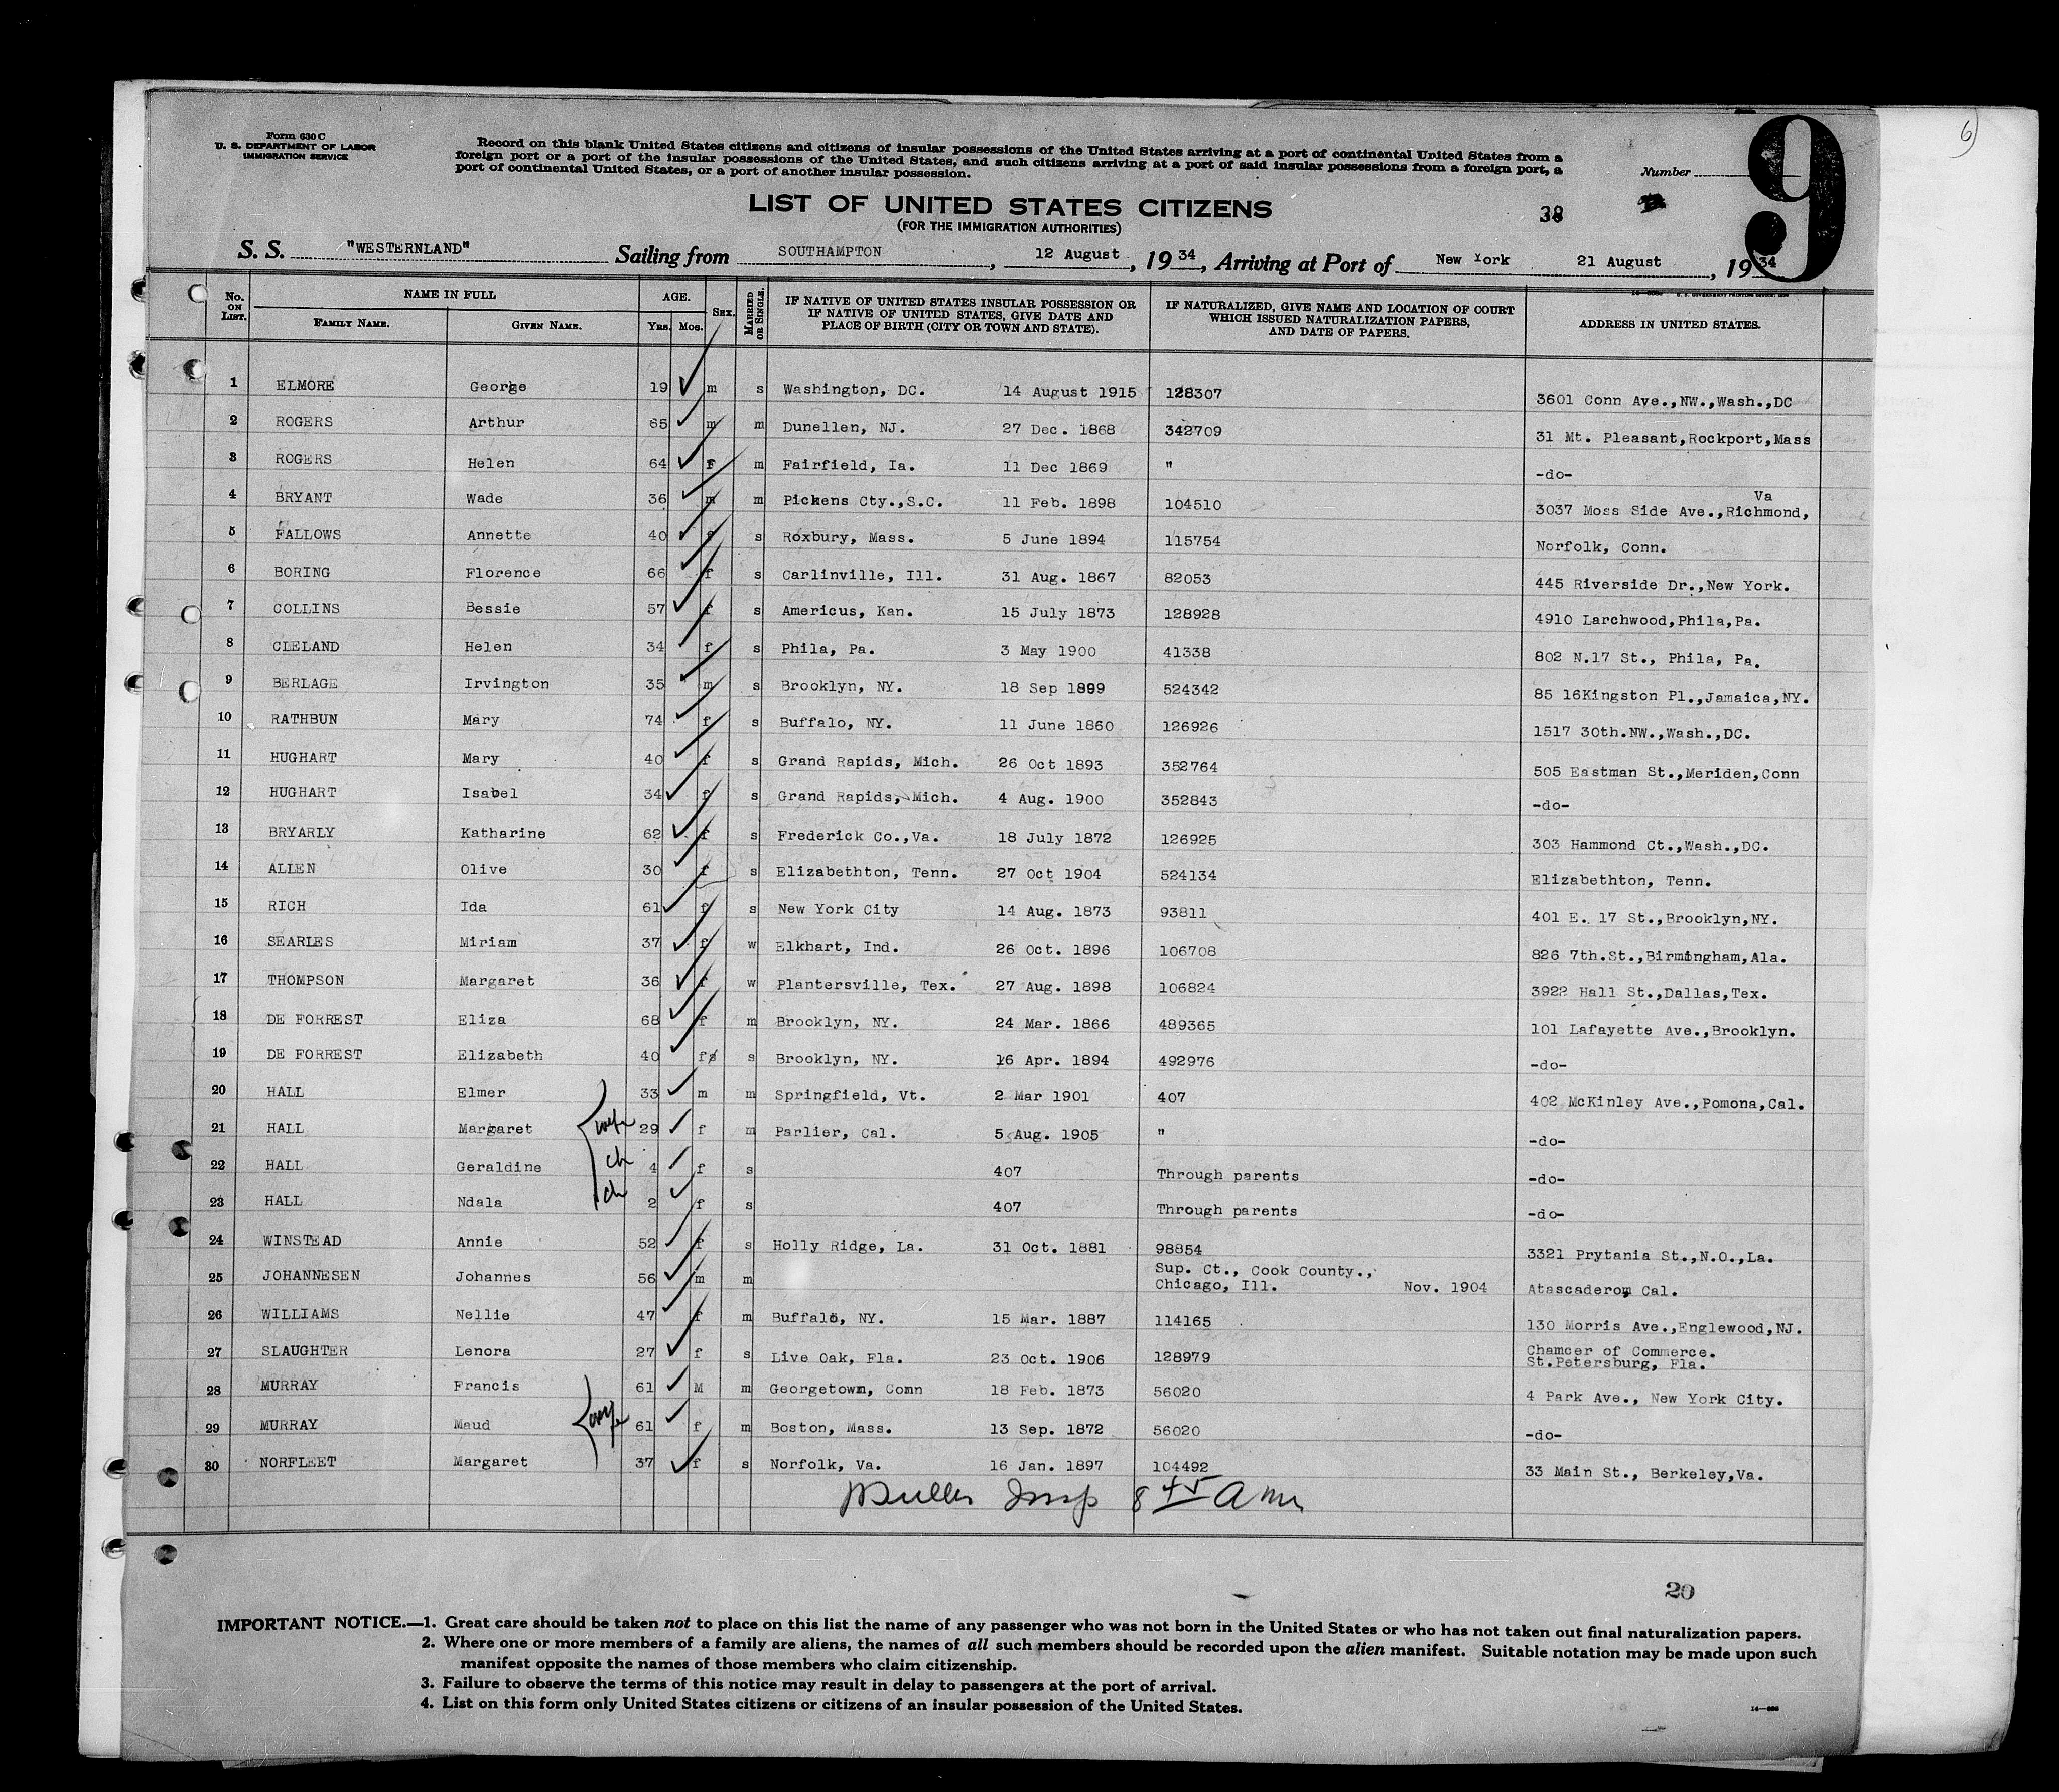 6
Form 630 C
U. S. DEPARTMENT OF LABOR
IMMIGRATION SERVICE
Record on this blank United States citizens and citizens of insular possessions of the United States arriving at a port of continental United States from a
foreign port or a port of the insular possessions of the United States, and such citizens arriving at a port of said insular possessions from a foreign port, a
port of continental United States, or a port of another insular possession.
Number
9
LIST OF UNITED STATES CITIZENS
38
(FOR THE IMMIGRATION AUTHORITIES)
S. S. "WESTERNLAND" Sailing from SOUTHAMPTON , 12 August , 19 34 , Arriving at Port of New York 21 August , 19 34
No. ON LIST. NAME IN FULL FAMILY NAME. GIVEN NAME. AGE. Yrs. Mos. SEX. MARRIED OR SINGLE. IF NATIVE OF UNITED STATES INSULAR POSSESSION OR IF NATIVE OF UNITED STATES, GIVE DATE AND PLACE OF BIRTH (CITY OR TOWN AND STATE). IF NATURALIZED, GIVE NAME AND LOCATION OF COURT WHICH ISSUED NATURALIZATION PAPERS, AND DATE OF PAPERS. ADDRESS IN UNITED STATES.
1 ELMORE George 19 m s Washington, DC. 14 August 1915 128307 3601 Conn Ave.,NW.,Wash.,DC
2 ROGERS Arthur 65 m m Dunellen, NJ. 27 Dec. 1868 342709 31 Mt. Pleasant,Rockport,Mass
3 ROGERS Helen 64 f m Fairfield, Ia. 11 Dec 1869 " -do-
4 BRYANT Wade 36 m m Pickens Cty.,S.C. 11 Feb. 1898 104510 3037 Moss Side Ave.,Richmond, Va
5 FALLOWS Annette 40 f s Roxbury, Mass. 5 June 1894 115754 Norfolk, Conn.
6 BORING Florence 66 f s Carlinville, Ill. 31 Aug. 1867 82053 445 Riverside Dr.,New York.
7 COLLINS Bessie 57 f s Americus, Kan. 15 July 1873 128928 4910 Larchwood,Phila,Pa.
8 CLELAND Helen 34 f s Phila, Pa. 3 May 1900 41338 802 N.17 St., Phila, Pa.
9 BERLAGE Irvington 35 m s Brooklyn, NY. 18 Sep 1899 524342 85 16Kingston Pl.,Jamaica,NY.
10 RATHBUN Mary 74 f s Buffalo, NY. 11 June 1860 126926 1517 30th.NW.,Wash.,DC.
11 HUGHART Mary 40 f s Grand Rapids, Mich. 26 Oct 1893 352764 505 Eastman St.,Meriden,Conn
12 HUGHART Isabel 34 f s Grand Rapids, Mich. 4 Aug. 1900 352843 -do-
13 BRYARLY Katharine 62 f s Frederick Co.,Va. 18 July 1872 126925 303 Hammond Ct.,Wash.,DC.
14 ALLEN Olive 30 f s Elizabethton, Tenn. 27 Oct 1904 524134 Elizabethton, Tenn.
15 RICH Ida 61 f s New York City 14 Aug. 1873 93811 401 E. 17 St.,Brooklyn,NY.
16 SEARLES Miriam 37 f w Elkhart, Ind. 26 Oct. 1896 106708 826 7th.St.,Birmingham,Ala.
17 THOMPSON Margaret 36 f w Plantersville, Tex. 27 Aug. 1898 106824 3922 Hall St.,Dallas,Tex.
18 DE FORREST Eliza 68 f m Brooklyn, NY. 24 Mar. 1866 489365 101 Lafayette Ave.,Brooklyn.
19 DE FORREST Elizabeth 40 f s Brooklyn, NY. 16 Apr. 1894 492976 -do-
20 HALL Elmer 33 m m Springfield, Vt. 2 Mar 1901 407 402 McKinley Ave.,Pomona,Cal.
21 HALL Margaret wife 29 f m Parlier, Cal. 5 Aug. 1905 " -do-
22 HALL Geraldine ch 4 f s 407 Through parents -do-
23 HALL Ndala ch 2 f s 407 Through parents -do-
24 WINSTEAD Annie 52 f s Holly Ridge, La. 31 Oct. 1881 98854 3321 Prytania St.,N.O.,La.
25 JOHANNESEN Johannes 56 m m Sup. Ct., Cook County., Chicago, Ill. Nov. 1904 Atascadero, Cal.
26 WILLIAMS Nellie 47 f m Buffalo, NY. 15 Mar. 1887 114165 130 Morris Ave.,Englewood,NJ.
27 SLAUGHTER Lenora 27 f s Live Oak, Fla. 23 Oct. 1906 128979 Chamcer of Commerce. St.Petersburg, Fla.
28 MURRAY Francis 61 M m Georgetown, Conn 18 Feb. 1873 56020 4 Park Ave., New York City.
29 MURRAY Maud wife 61 f m Boston, Mass. 13 Sep. 1872 56020 -do-
30 NORFLEET Margaret 37 f s Norfolk, Va. 16 Jan. 1897 104492 33 Main St., Berkeley,Va.
Insp 8 45 Am
20
IMPORTANT NOTICE.—1. Great care should be taken not to place on this list the name of any passenger who was not born in the United States or who has not taken out final naturalization papers.
2. Where one or more members of a family are aliens, the names of all such members should be recorded upon the alien manifest. Suitable notation may be made upon such
manifest opposite the names of those members who claim citizenship.
3. Failure to observe the terms of this notice may result in delay to passengers at the port of arrival.
4. List on this form only United States citizens or citizens of an insular possession of the United States.